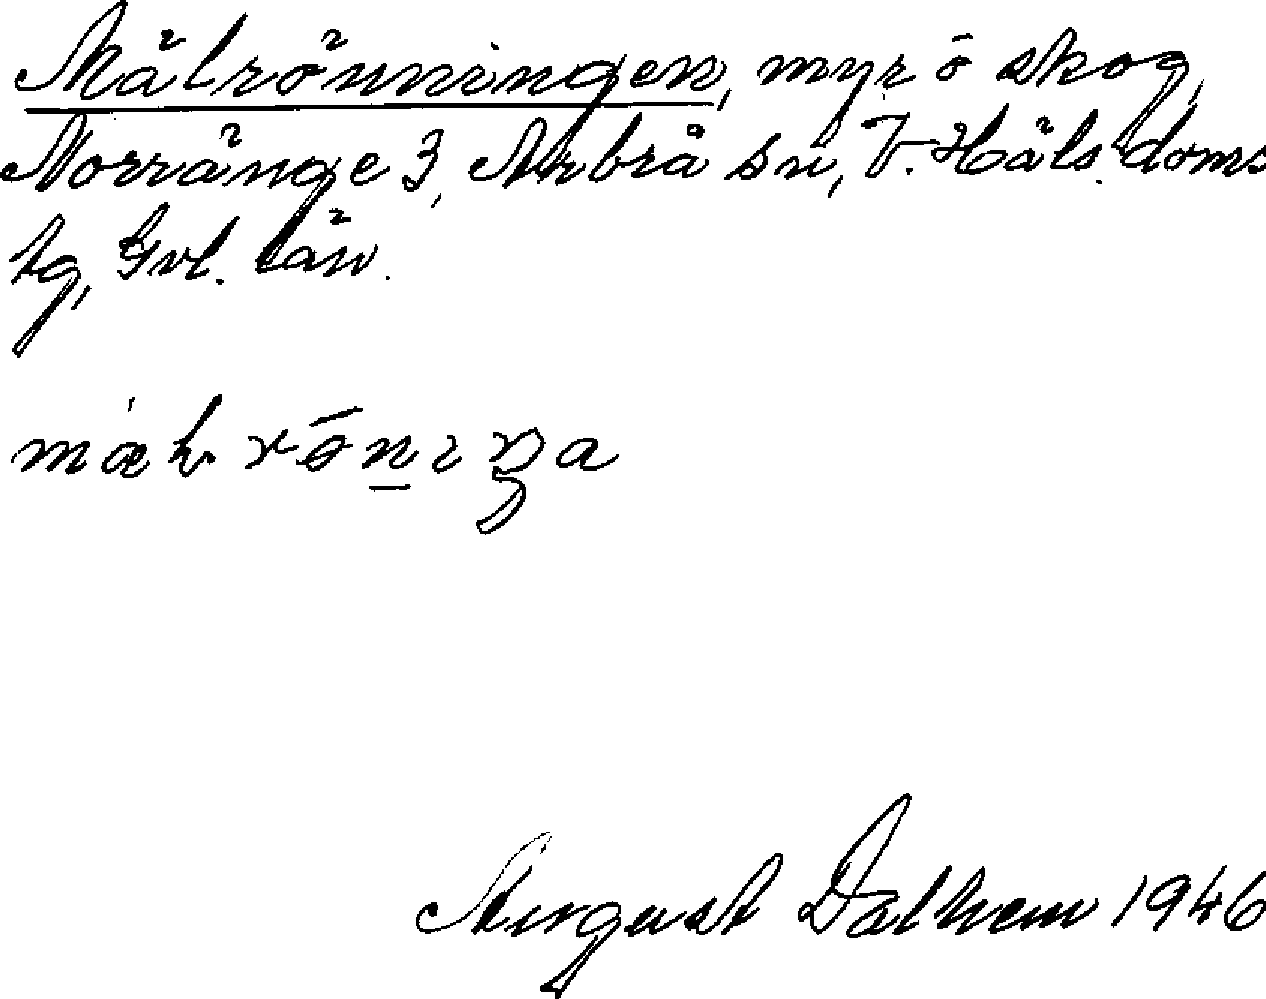 Mälrönningen, myr o skog,
Norränge 3, Arbrå sn, V. Häls. doms
tg, Gvl. län.
August Dalhem 1946